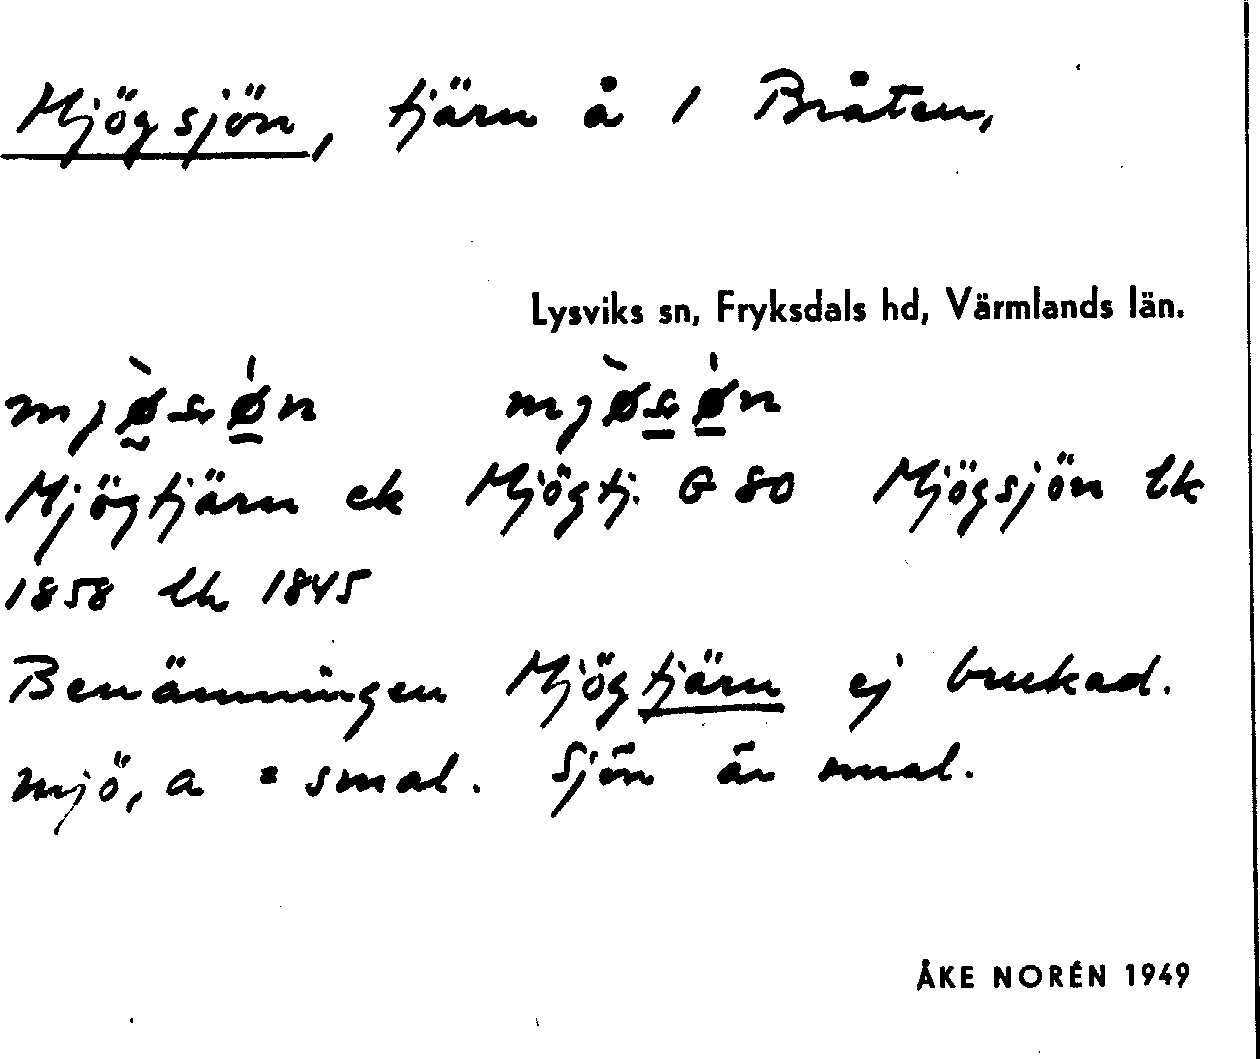 Mjögsjön, tjärn å 1 Bråten,
Lysviks sn, Fryksdals hd, Värmlands län.
mjø̀sø̍n mjø̀sø̍n
Mjögtjärn ek Mjögtj. G 80 Mjögsjön lk
1858 lk 1845
Benämningen Mjögtjärn ej brukad.
mjö, a = smal. Sjön är smal.
ÅKE NORÉN 1949